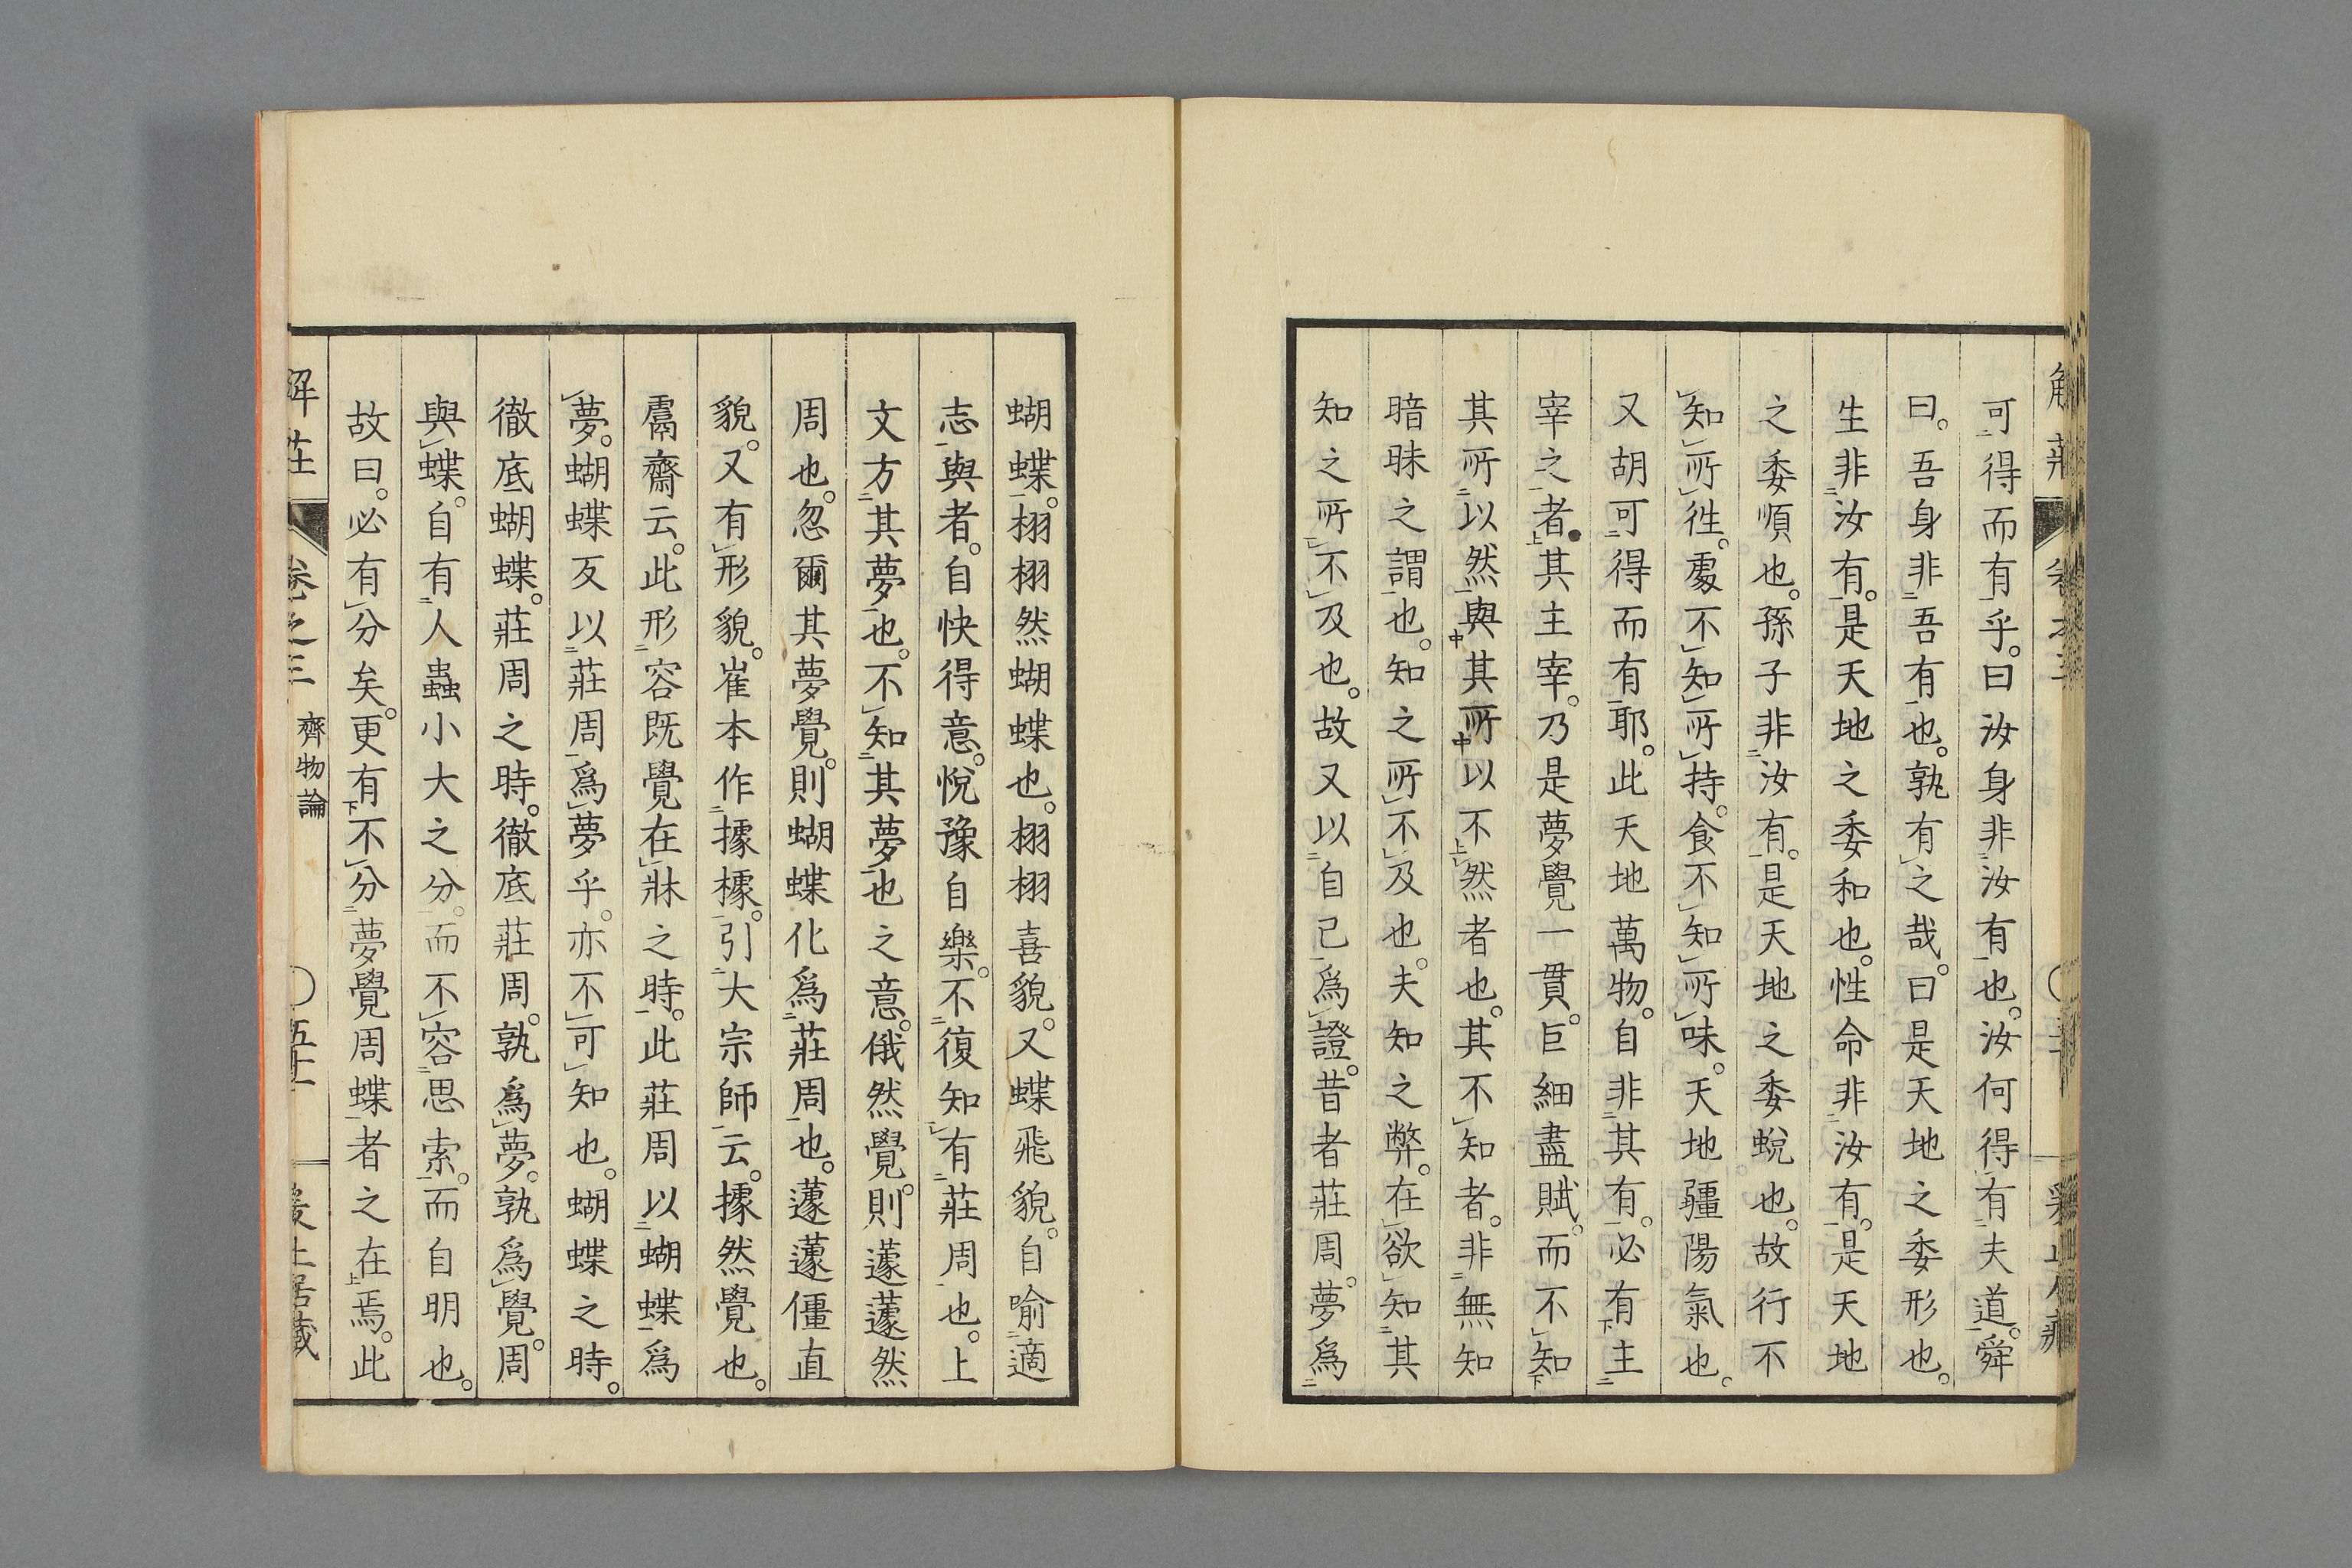 可得而有乎。曰汝身非汝有也。汝何得有夫道。舜
曰。吾身非吾有也。孰有之哉。曰是天地之委形也。
生非汝有。是天地之委和也。性命非汝有。是天地
之委順也。孫子非汝有。是天地之委蛻也。故行不
知所徃。處不知所持。食不知所味。天地疆陽氣也。
又胡可得而有耶。此天地萬物。自非其有。必有主
宰之者。其主宰。乃是夢覺一貫。巨細盡賦。而不知
其所以然與其所以不然者也。其不知者。非無知
暗昧之謂也。知之所不及也。夫知之弊。在欲知其
知之所不及也。故又以自己爲證。昔者莊周。夢爲
蝴蝶。栩栩然蝴蝶也。栩栩喜貌。又蝶飛貌。自喻適
志與者。自快得意。悅豫自樂。不復知有莊周也。上
文方其夢也。不知其夢也之意。俄然覺。則蘧蘧然
周也。忽爾其夢覺。則蝴蝶化爲莊周也。蘧蘧僵直
貌。又有形貌。崔本作據據。引大宗師云。據然覺也。
鬳齋云。此形容既覺在牀之時。此莊周以蝴蝶爲
夢。蝴蝶反以莊周爲夢乎。亦不可知也。蝴蝶之時。
徹底蝴蝶。莊周之時。徹底莊周。孰爲夢。孰爲覺。周
與蝶。自有人蟲小大之分。而不容思索。而自明也。
故曰。必有分矣。更有不分夢覺周蝶者之在焉。此
解莊 卷之三 齊物論 五十一